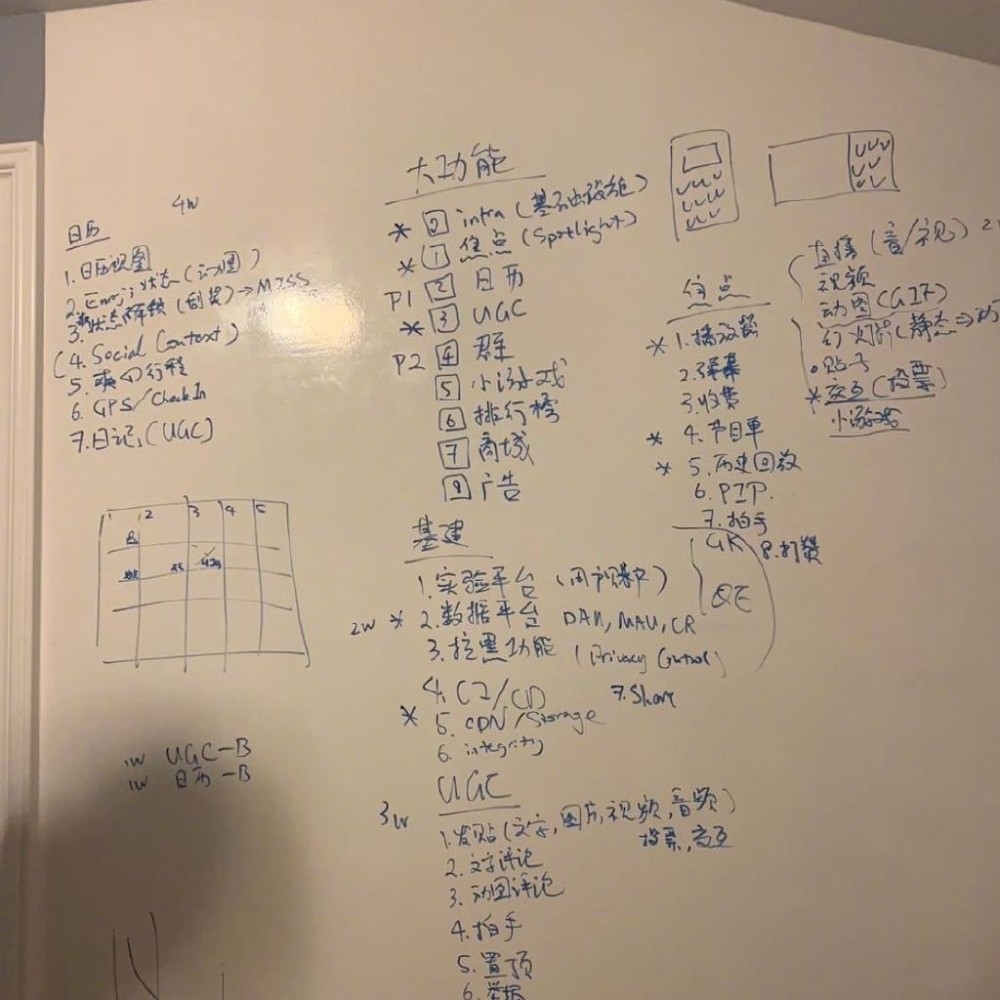 4W
日历
1.日历视图
2.Emoji状态(动图)
3.状态解锁(刮奖)→MISS
(4. Social Context)
5. 行程
6. GPS/Check In
7.日记(UGC)
1 2 3 4 5
1W UGC-B
1W 日历-B
大功能
* infra (基础设施)
* 1 焦点 (Spotlight)
P1 2 日历
* 3 UGC
P2 4 群
5 小游戏
6 排行榜
7 商城
广告
基建
1.实验平台
2W * 2.数据平台 DAU, MAU, CR
3.拉黑功能 (Privacy Control)
4. CI/CD 7. Share
* 5. CDN/Storage
6. integrity
GK
QE
UGC
3W
1.发贴(文字,图片,视频,音频)
投票,
2.文字评论
3.动图评论
4.拍手
5.置顶
6.举报
焦点
* 1.播放器
2.弹幕
3.收费
* 4.节目单
* 5.历史回放
6.PIP.
7.拍手
8.打赏
直播(音/视)
视频
动图(GIF)
幻灯片(静态⇒动
贴子
* 交互(投票)
小游戏